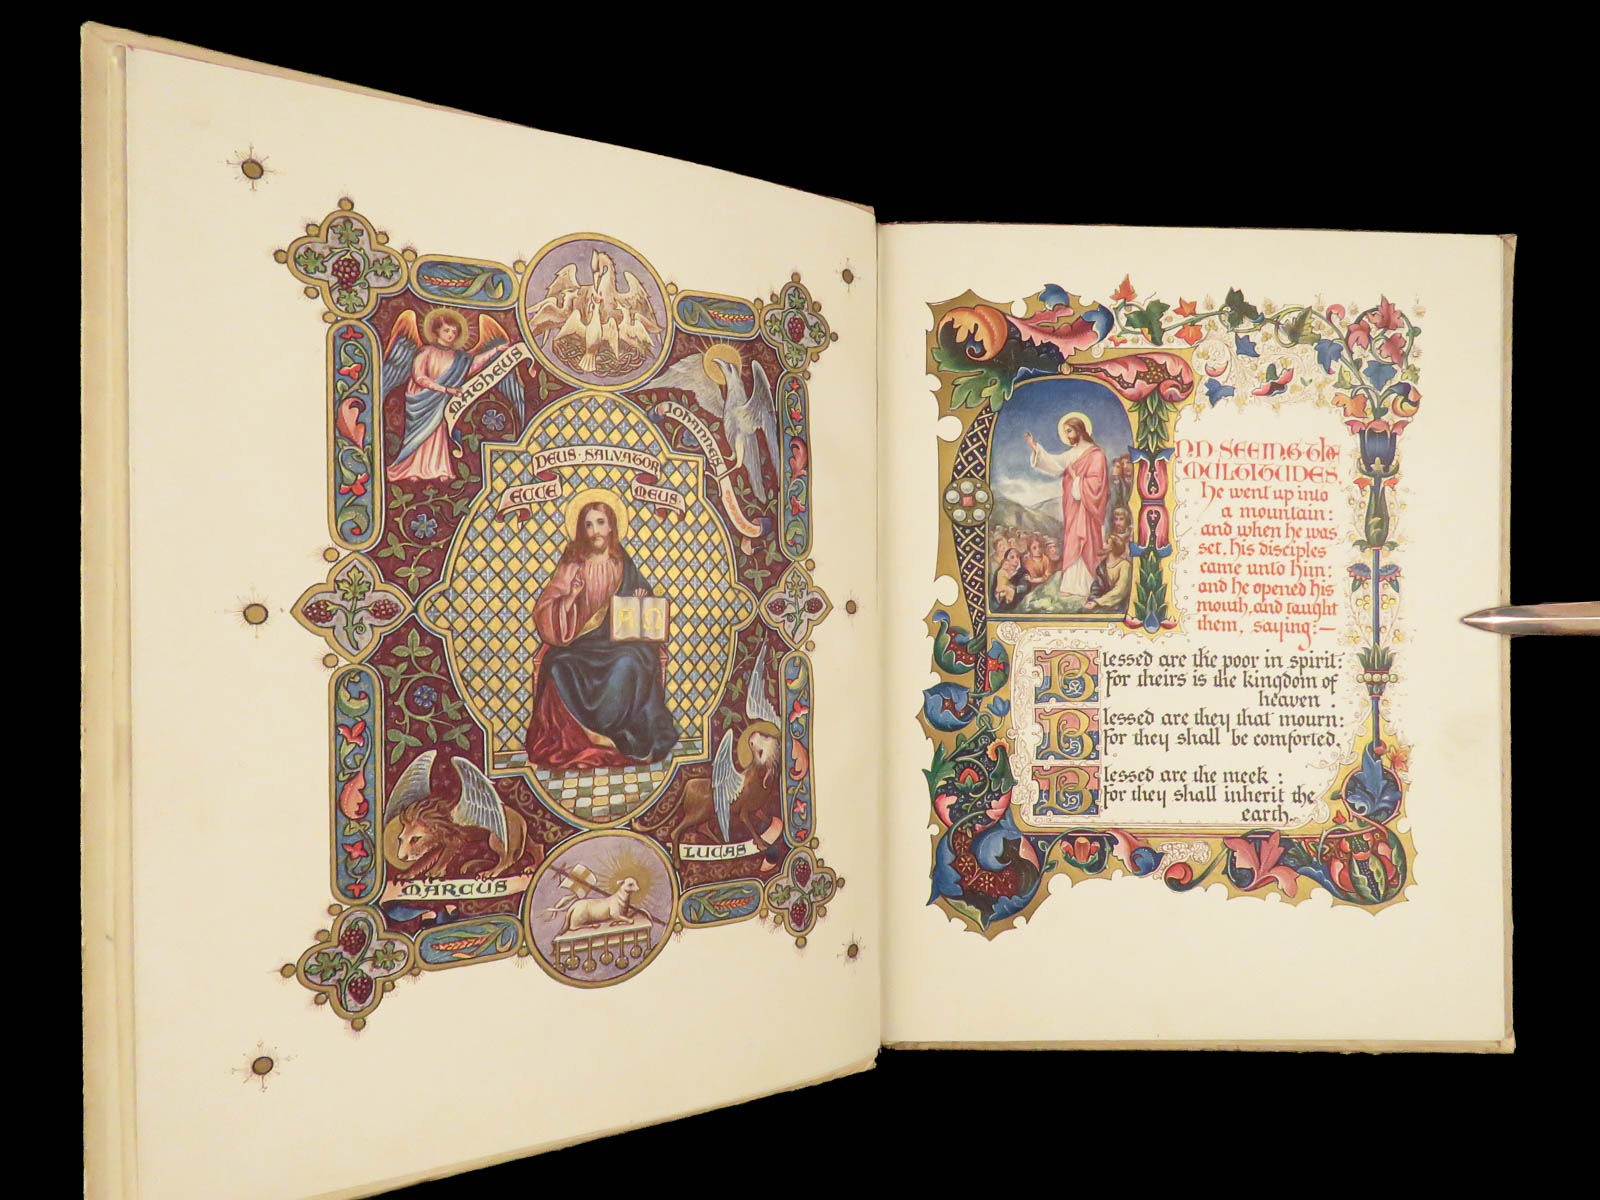 MATHEUS
IOHANNES
DEUS · SALVATOR
ECCE MEUS
A Ω
MARCUS
LUCAS
AND · SEEING · the
MULTITUDES,
he went up into
a mountain:
and when he was
set, his disciples
came unto him:
and he opened his
mouth, and taught
them, saying:—
Blessed are the poor in spirit:
for theirs is the kingdom of
heaven.
Blessed are they that mourn:
for they shall be comforted.
Blessed are the meek :
for they shall inherit the
earth.